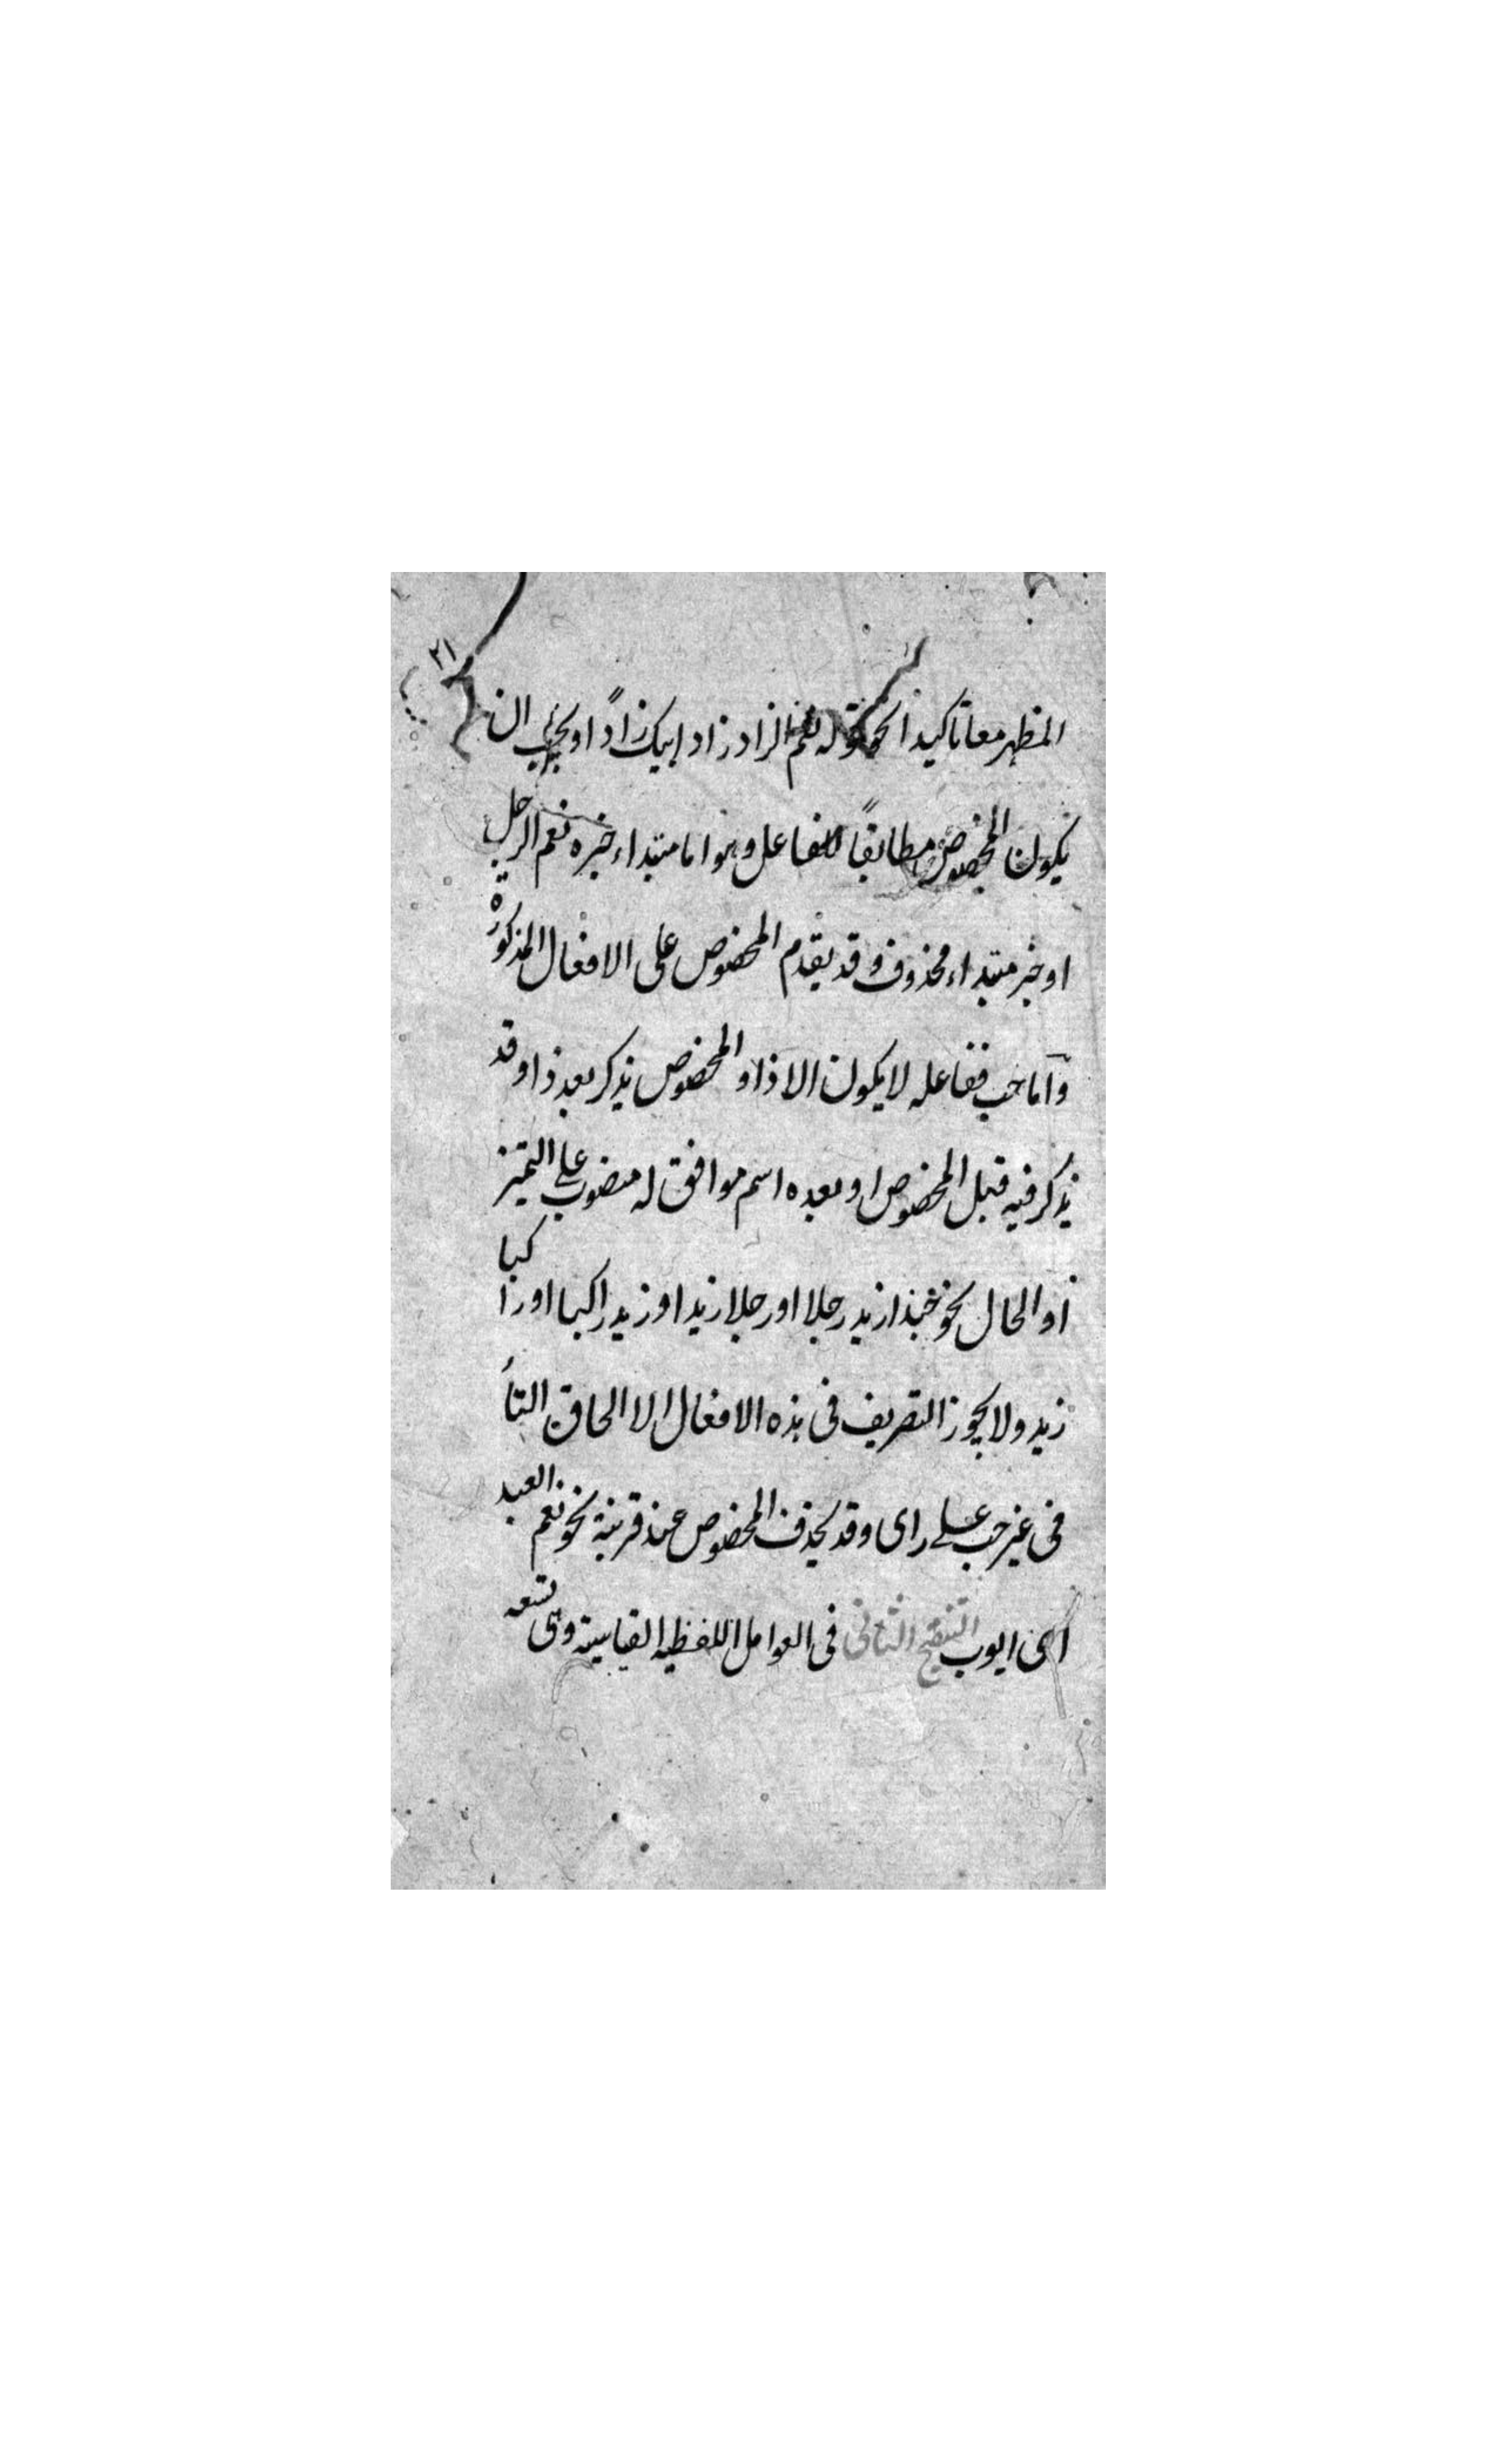 ٢١
المظهر معا تاكيدا نحو قوله نعم الزاد زاد ابيك زاداً او يجب ان
يكون المخصوص مطابقاً للفاعل وهو اما مبتداء خبره نعم الرجل
او خبر مبتداء محذوف وقد يقدم المخصوص على الافعال المذكورة
وآما حب ففاعله لا يكون الا ذا والمخصوص يذكر بعد ذا وقد
يذكر فيه قبل المخصوص او بعده اسم موافق له منصوب على التميز
او الحال نحو حبذا زيد رجلا او رجلا زيد او زيد راكبا او راكبا
زيد ولا يجوز التصريف فى هذه الافعال الا الحاق التاء
فى غير حب على راى وقد يحذف المخصوص عند قرينة نحو نعم العبد
اى ايوب التنقيح الثانى فى العوامل اللفظيه القياسية وهى تسعه